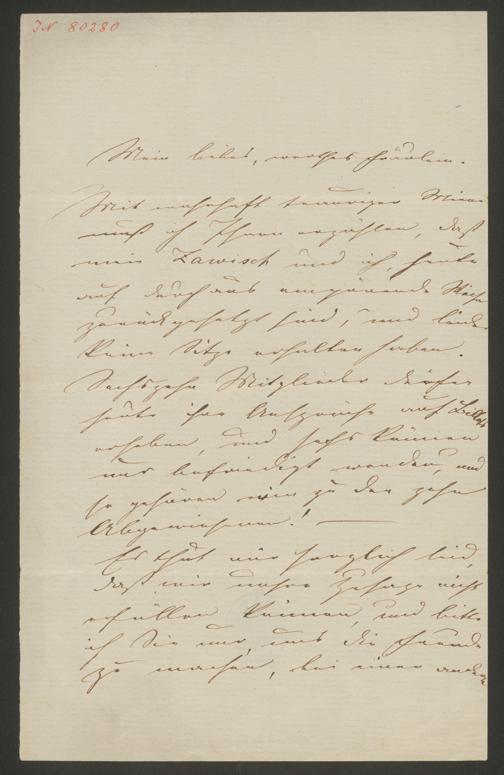 IN 80280
Mein liebes, werthes Fräulein.
Mit wahrhaft trauriger Miene
muß ich Ihnen erzählen, daß
mein Zawisch und ich, heute
auf durchaus empörende Weise
zurückgesetzt sind, und leider
keine Sitze erhalten haben.
Sechszehn Mitglieder dürfen
heute ihre Ansprüche auf Billets
erheben, und sechs können
nur befriedigt werden, und
so gehören wir zu den zehn
Abgewiesenen!
Es thut mir herzlich leid,
daß wir unsere Zusage nicht
erfüllen können, und bitte
ich Sie nur, uns die Freude
zu machen, bei einer andern